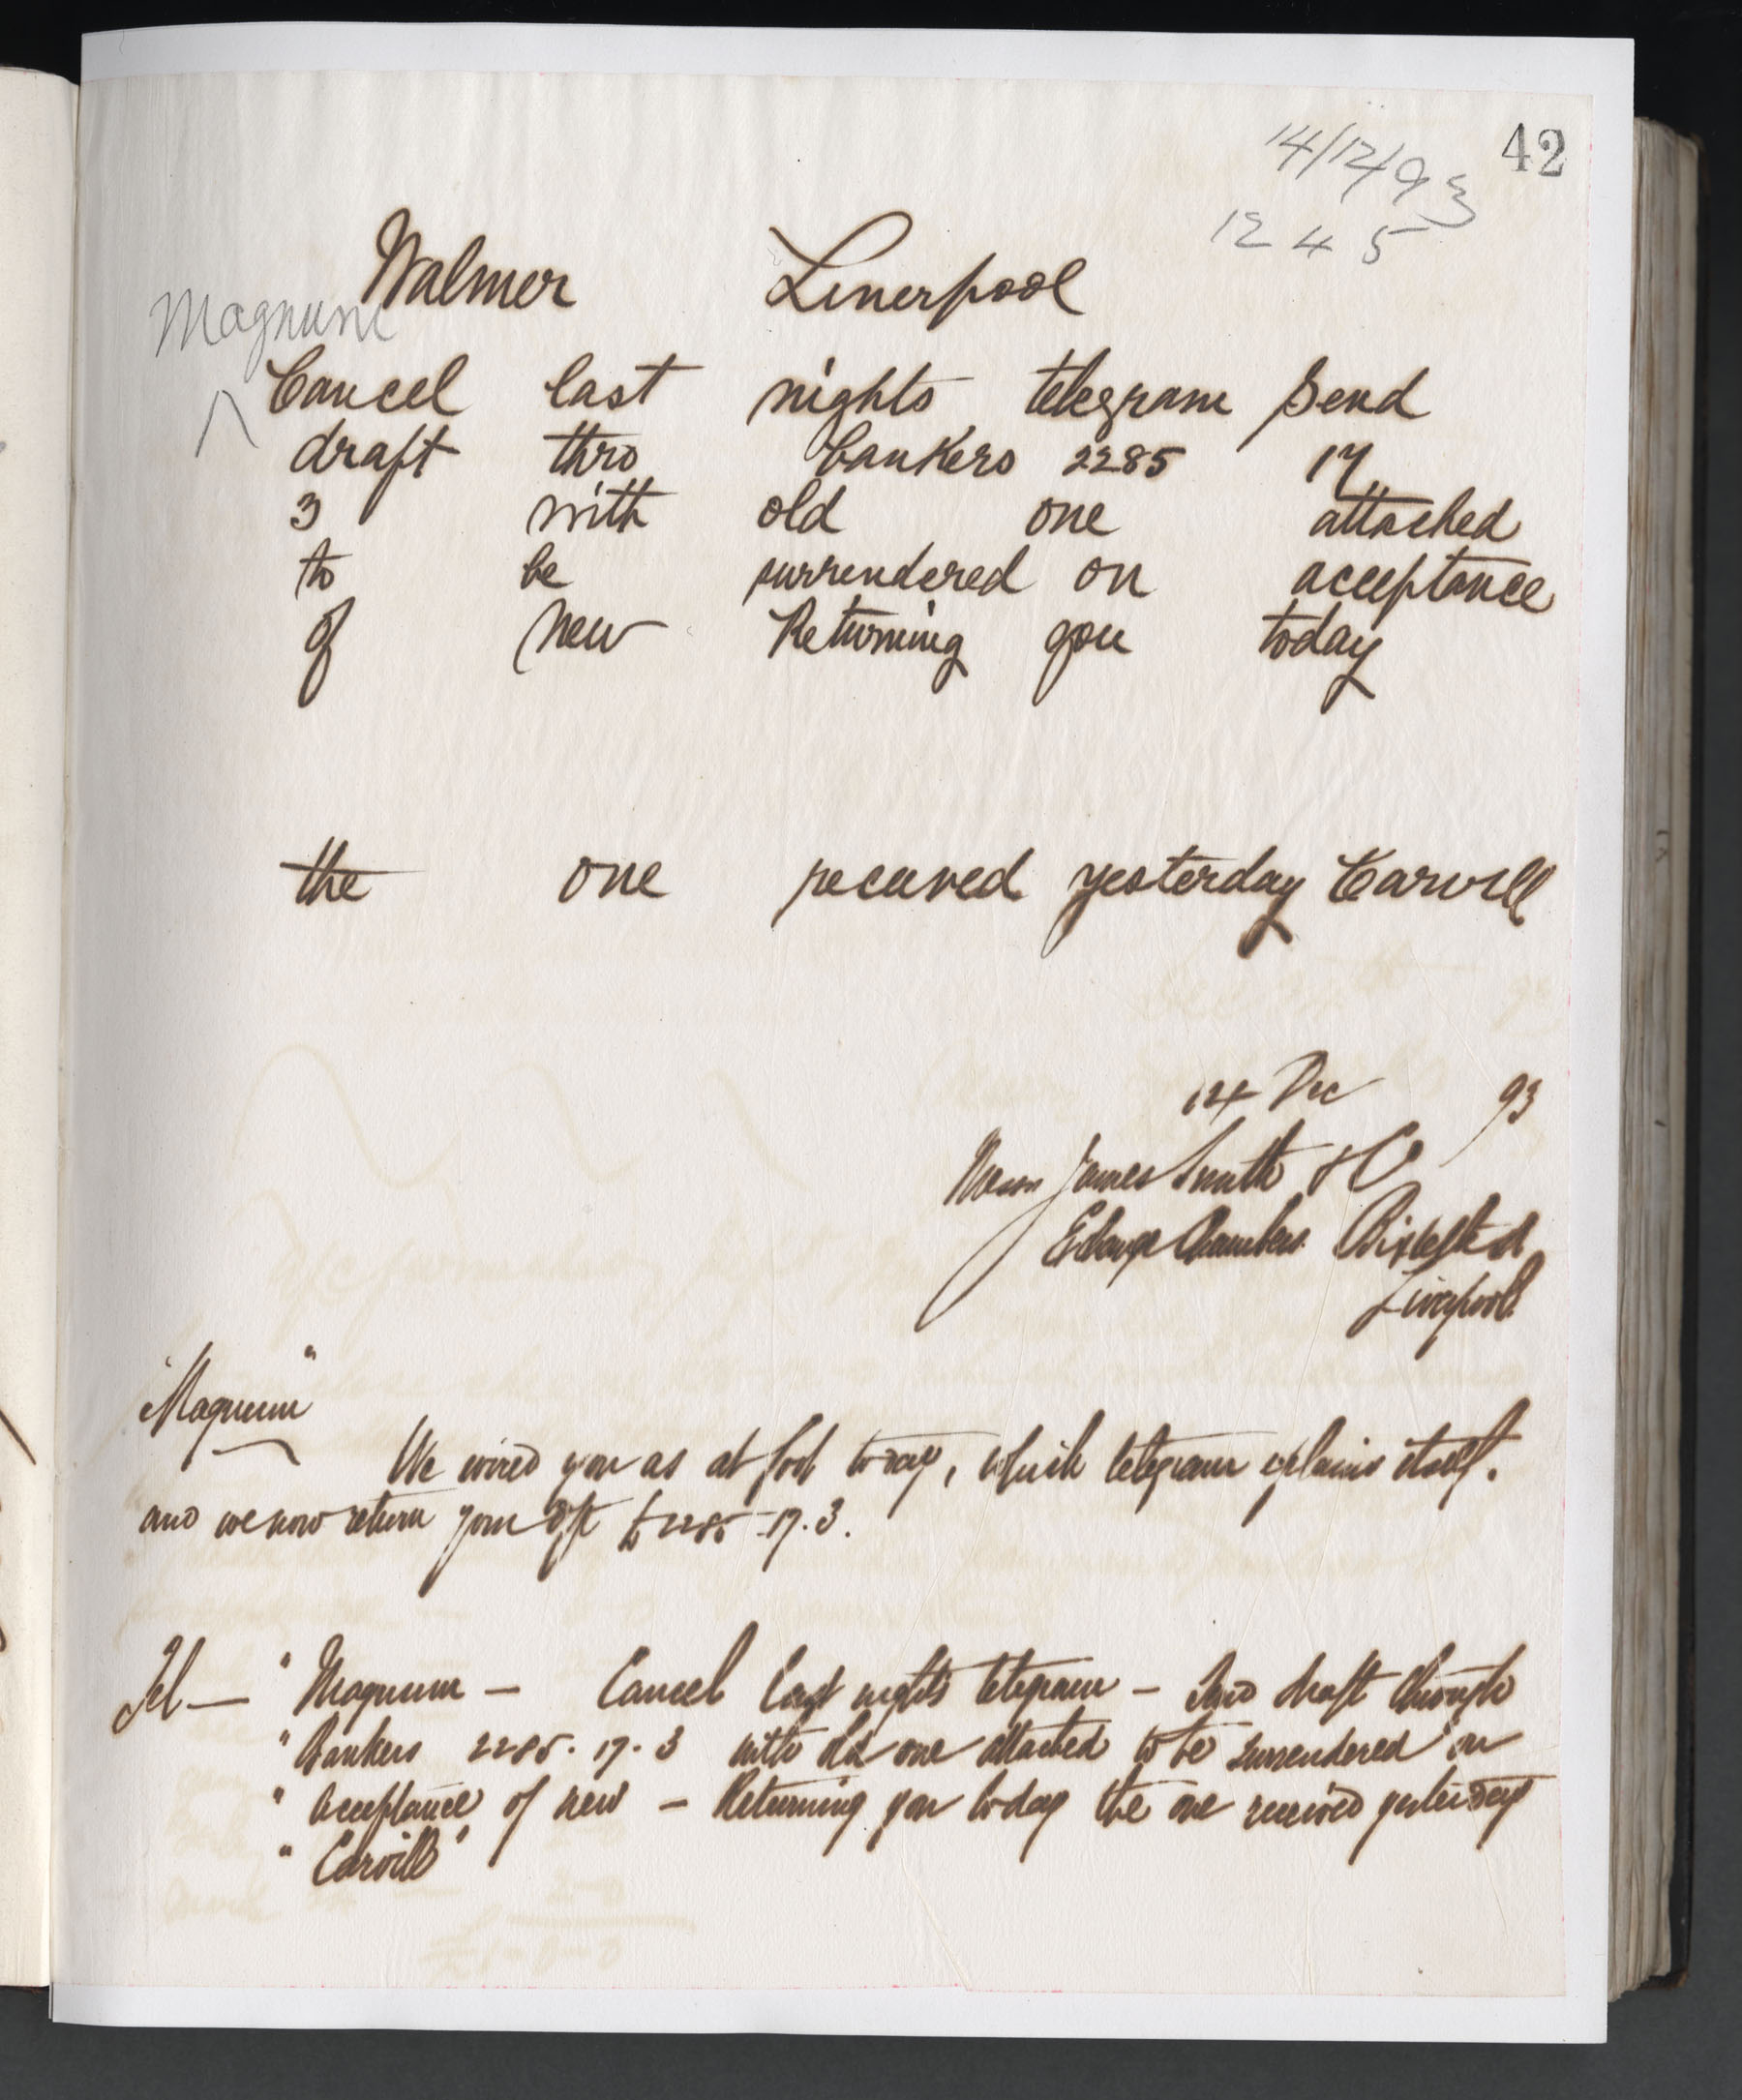 42
14/12/93
12 45
Walmer Liverpool
Magnum
Cancel last nights telegram Send
draft thro bankers 2285 17
3 with old one attached
to be surrendered on acceptance
of new Returning you today
the one received yesterday Carvill
14 Dec 93
Messrs James Smith & Co
Exchange Chambers Bixteth St
Liverpool
"Magnum"
We wired you as at foot today, which telegram explains itself.
and we now return your dft £2285-17.3.
Tel — "Magnum — Cancel last nights telegram — Send draft through
"Bankers 2285.17.3 with old one attached to be surrendered on
"Acceptance of new — Returning you today the one received yesterday
"Carvill"